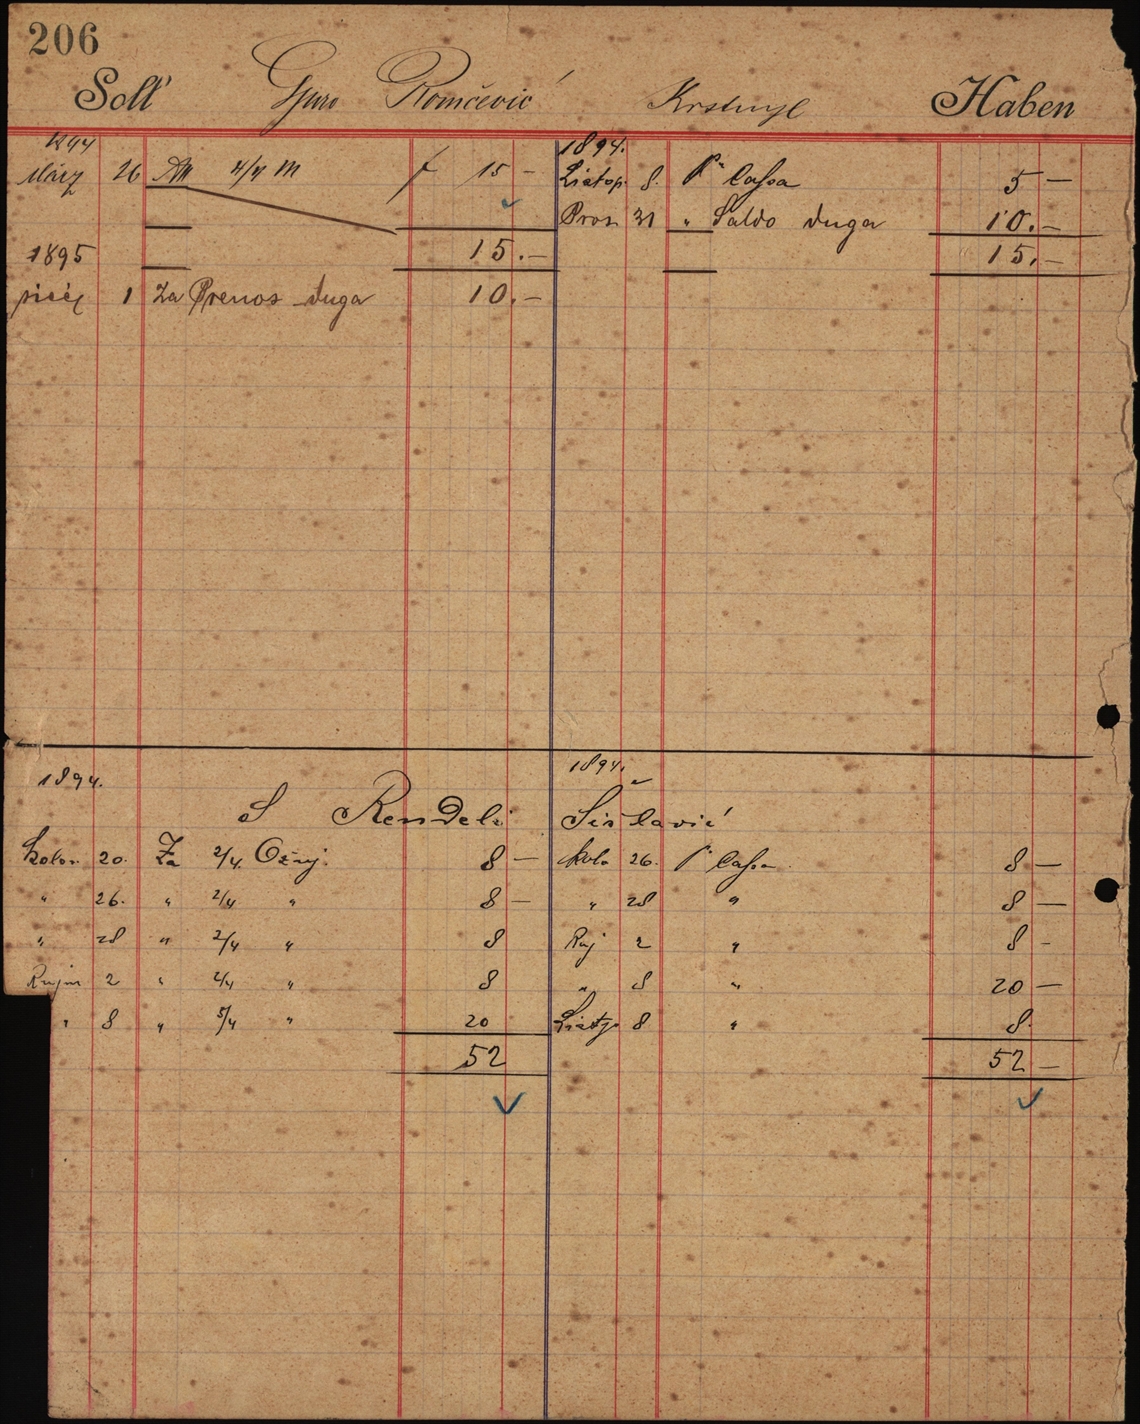 206
Soll Gjuro Romčević Krstinje Haben
1894 1894.
März 26 4/4 M f 15 — Listop. 8. Pr Cassa 5 —
Pros 31 " Saldo duga 10.—
1895 15.— 15.—
1 Za Prenos duga 10.—
1894. 1894.
S Rendeli Šišlavić
Kolov. 20. Za 2/4 8 — Kolo 26. Pr Cassa 8 —
" 26. " 2/4 " 8 — " 28 " 8 —
" 28 " 2/4 " 8 Ruj 2 " 8 -
Rujna 2 " 2/4 " 8 " 8 " 20 —
" 8 " 5/4 " 20 Listop 8 " 8.
52 52 —